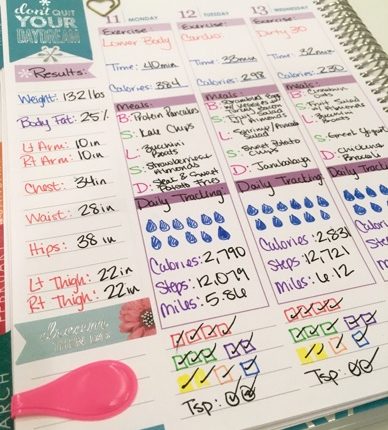 don't QUIT
YOUR
DAYDREAM
Results:
Weight: 132 lbs
Body Fat: 25%
Lt Arm: 10in
Rt Arm: 10in
Chest: 34in
Waist: 28in
Hips: 38 in
Lt Thigh: 22in
Rt Thigh: 22in
11 MONDAY
Exercise
Lower Body
Time: 40min
Calories: 384
Meals:
B: Protein Pancakes
S: Kale Chips
L: Zucchini
Boats
S: Strawberries &
Almonds
D: Steak & Sweet
Potato Fries
Daily Tracking
Calories: 2,790
Steps: 12,079
Miles: 5.86
Tsp:
12 TUESDAY
Exercise
Cardio
Time: 33min
Calories: 298
Meals:
B: Scrambled Eggs
S:
L: Shrimp/
Avocado
S: Sweet Potato
Chips
D: Jambalaya
Daily Tracking
Calories: 2,831
Steps: 12,721
Miles: 6.12
Tsp:
13 WEDNESDAY
Exercise
Dirty 30
Time: 32min
Calories: 230
Meals:
B:
S: Fruit Salad
Almonds
L: Zucchini
S: Greek Yogurt
D: Chicken
Daily Tracking
FEBRUARY
MARCH